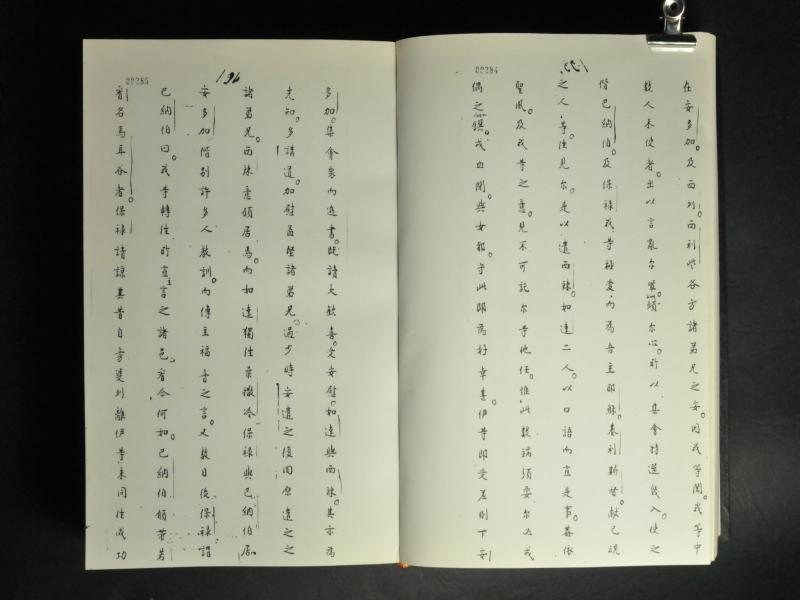 00284
133
在安多加。及西列而利些各方諸弟兄之安。因我等聞我等中
数人未使者。出以言亂尔等。傾尔心。所以集會特選幾人使之
偕巴納伯及保祿我等極愛。內為吾主耶穌基利斯督。獻己魂
之人。等往見尔。是以遣而辣。如達二人。以口語向宣是事。蓋依
聖風。及我等之意。見不可託尔等他任。惟此数端須要尔必戒
偶之饌。戒血閉與女報。守此即為好幸甚。伊等即受差別下安
00285
134
多加。集會眾向遞書。既讀大歡喜。受安慰。如達與而辣。其亦為
先知。多講道。加慰益堅諸弟兄。過少時安遣之復囘原遣之之
諸弟兄。而辣意頗居焉。而如達獨往柔撒冷保祿與巴納伯居
安多加偕別許多人教訓。而傳主福音之言。又数日後保祿謂
巴納伯曰。我等轉往所宣主言之諸邑。看今何如。巴納伯領帶若
翰名馬耳谷者。保祿請諒其昔自旁斐列離伊等未同往成功